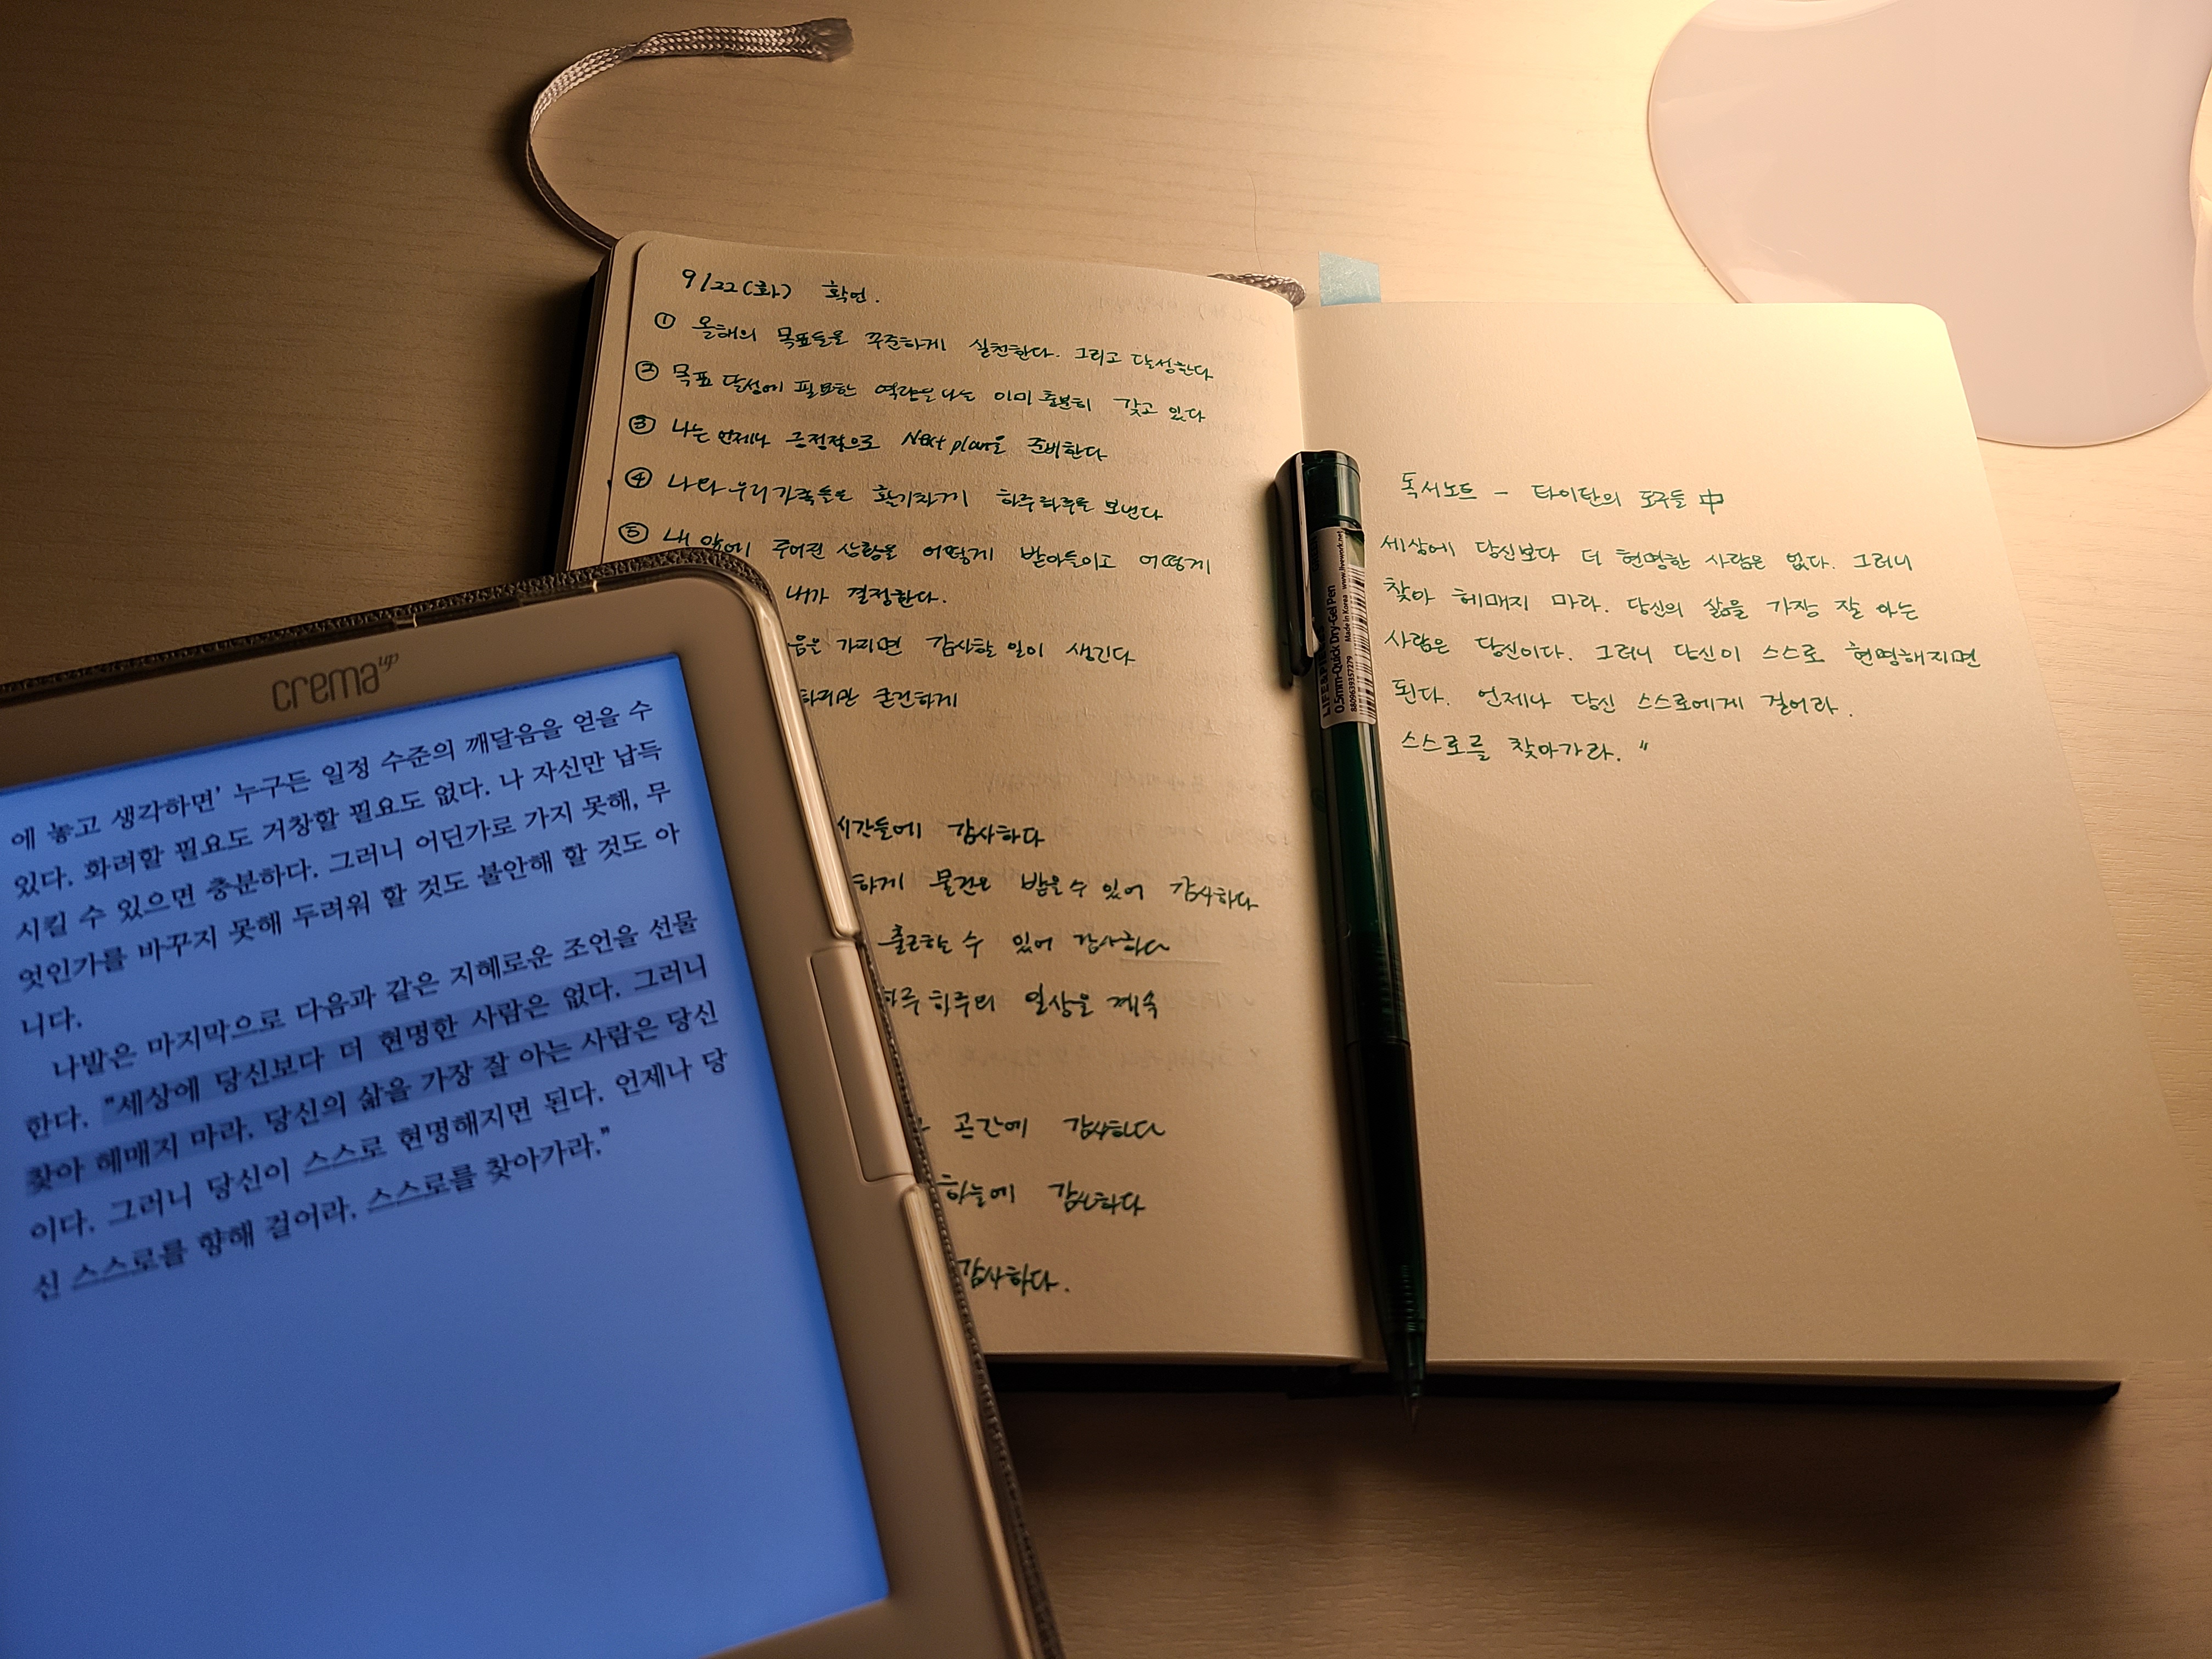 9/22(화) 확언.
① 올해의 목표들을 꾸준하게 실천한다. 그리고 달성한다
② 목표 달성에 필요한 역량을 나는 이미 충분히 갖고 있다
③ 나는 언제나 긍정적으로 Next plan을 준비한다
④ 나와 우리가족들은 활기차게 하루하루를 보낸다
⑤ 내 앞에 주어진 상황을 어떻게 받아들이고 어떻게
내가 결정한다.
음은 가지면 감사할 일이 생긴다
하지만 굳건하게
시간들에 감사하다
하게 물건을 받을 수 있어 감사하다
출근하는 수 있어 감사하다
하루하루의 일상을 계속
공간에 감사하다
하늘에 감사하다
감사하다.
독서노트 - 타이탄의 도구들 中
세상에 당신보다 더 현명한 사람은 없다. 그러니
찾아 헤매지 마라. 당신의 삶을 가장 잘 아는
사람은 당신이다. 그러니 당신이 스스로 현명해지면
된다. 언제나 당신 스스로에게 걸어라.
스스로를 찾아가라. "
LIFE&PI
0.5mm-Quick Dry-Gel Pen
Made in Korea www.livework.net
8809639357279
crema up
에 놓고 생각하면' 누구든 일정 수준의 깨달음을 얻을 수
있다. 화려할 필요도 거창할 필요도 없다. 나 자신만 납득
시킬 수 있으면 충분하다. 그러니 어딘가로 가지 못해, 무
엇인가를 바꾸지 못해 두려워 할 것도 불안해 할 것도 아
니다.
나발은 마지막으로 다음과 같은 지혜로운 조언을 선물
한다. "세상에 당신보다 더 현명한 사람은 없다. 그러니
찾아 헤매지 마라. 당신의 삶을 가장 잘 아는 사람은 당신
이다. 그러니 당신이 스스로 현명해지면 된다. 언제나 당
신 스스로를 향해 걸어라. 스스로를 찾아가라."